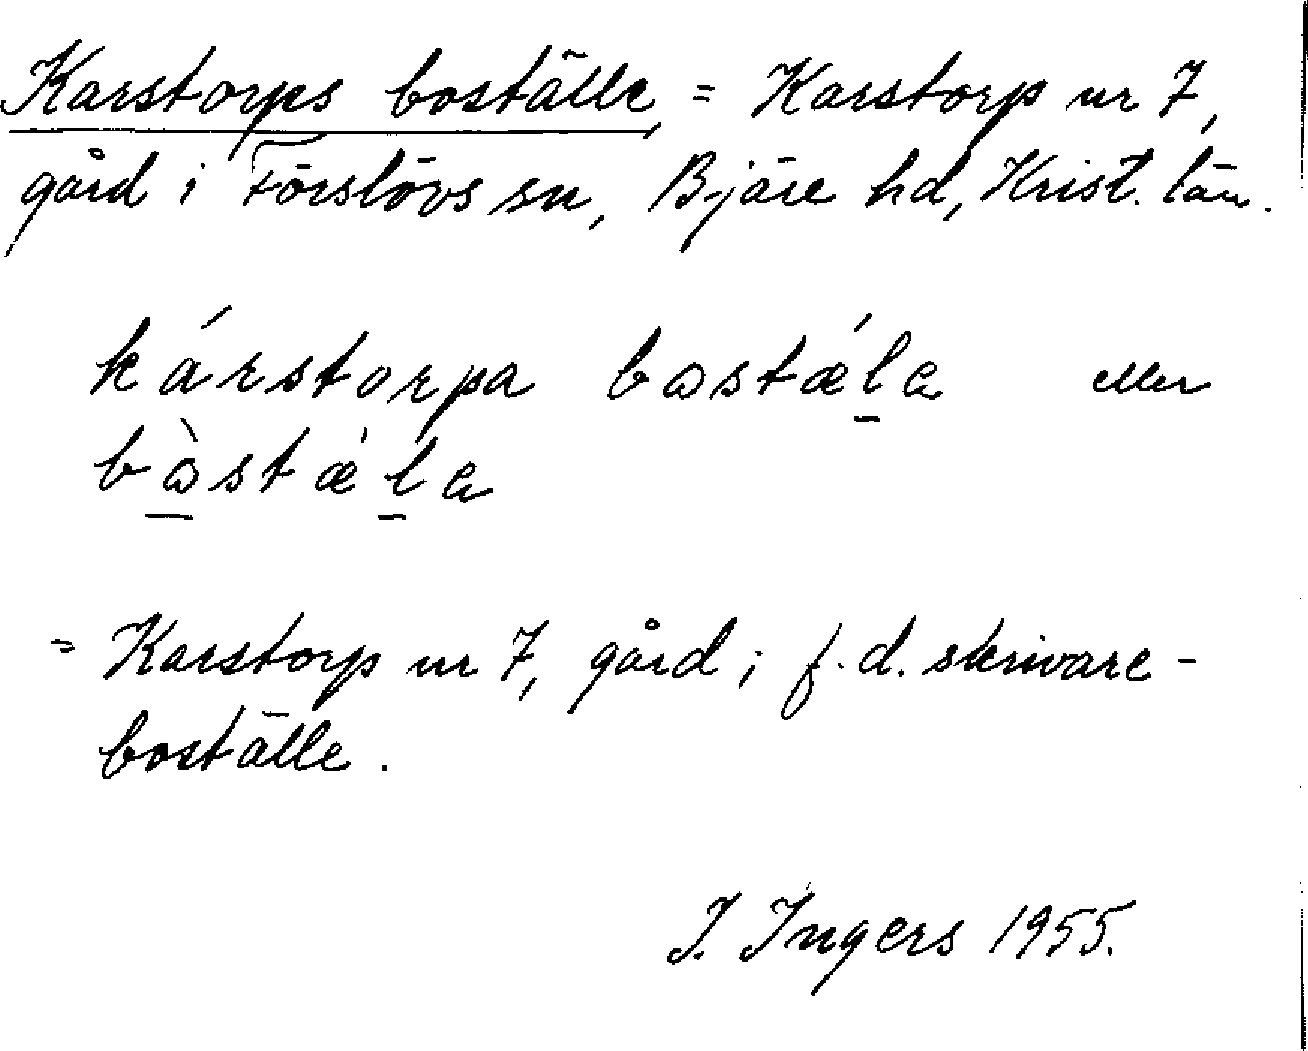 Karstorps boställe, = Karstorp nr 7,
gård i Förslövs sn, Bjäre hd, Krist. län.
kárstorpa bostǽla eller
bòstǽla
= Karstorp nr 7, gård; f.d. skrivare-
boställe.
I. Ingers 1955.